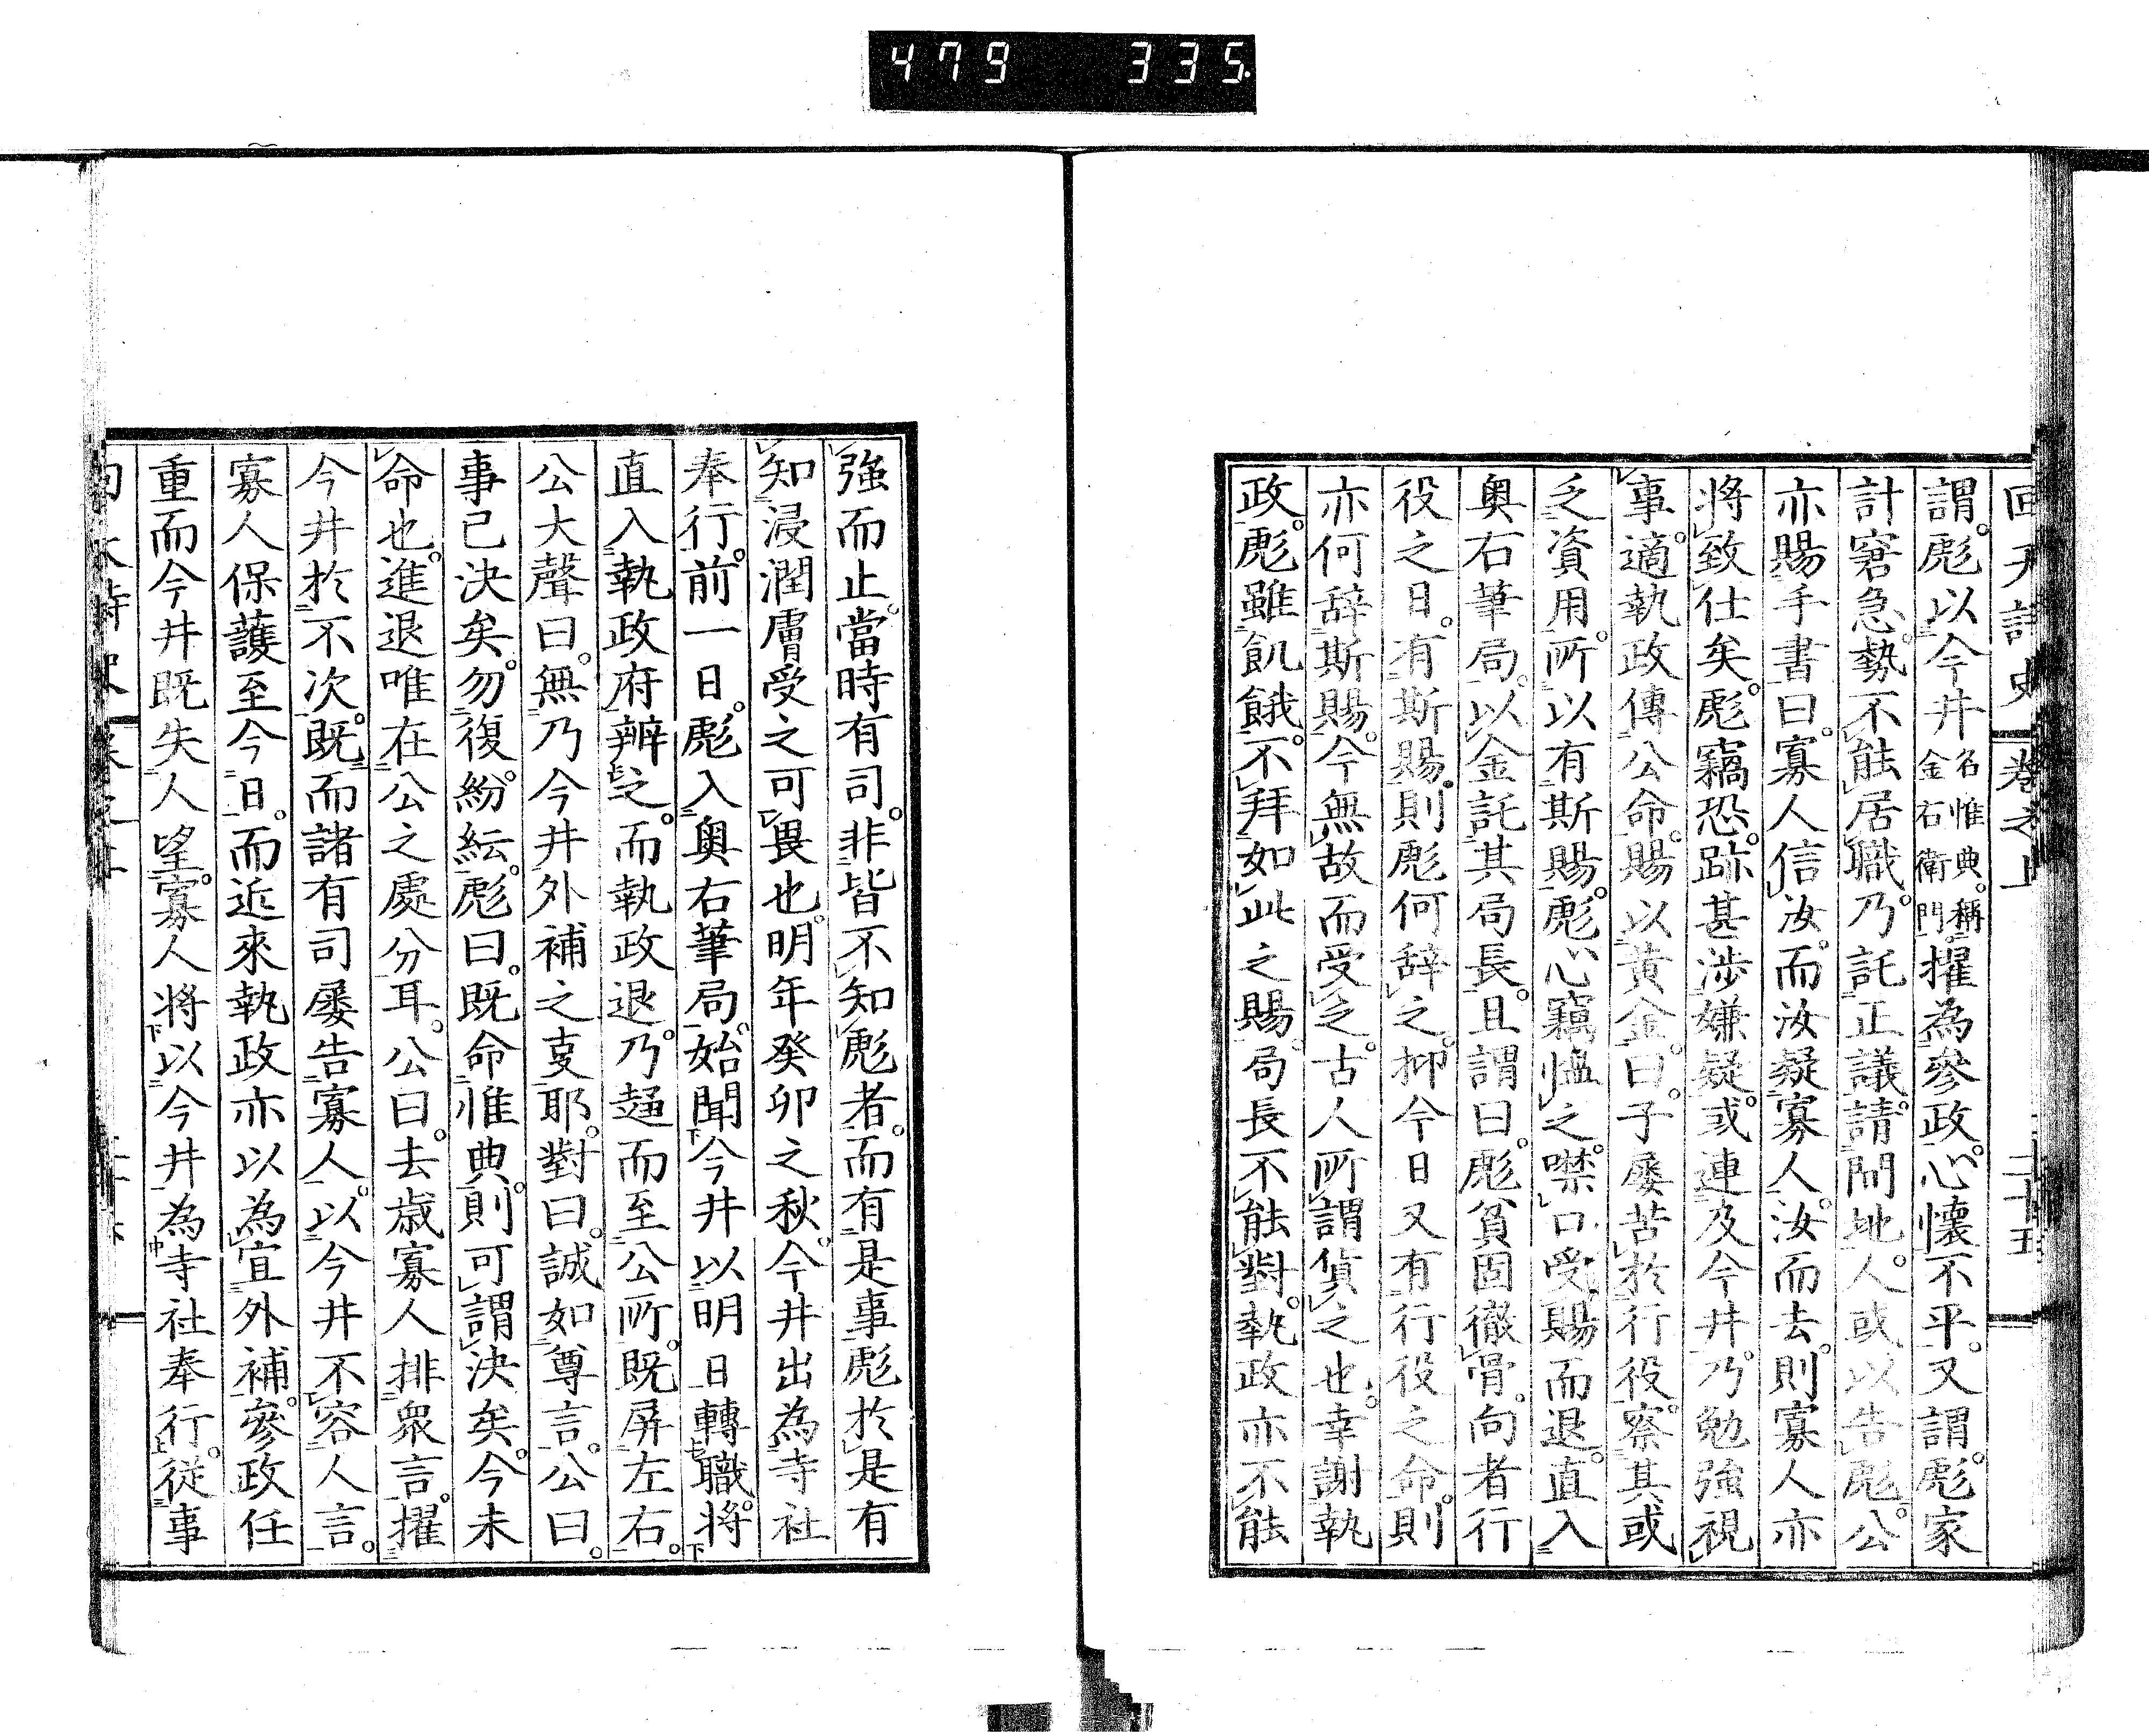 479 335.
回天詩史 卷之上 二十五
謂。彪以今井名惟典。稱金右衛門。擢為參政。心懷不平。又謂。彪家
計窘急。勢不能居職。乃託正議。請閒地。人或以告彪。公
亦賜手書曰。寡人信汝。而汝疑寡人。汝而去。則寡人亦
將致仕矣。彪竊恐。跡甚涉嫌疑。或連及今井。乃勉強視
事。適執政傳公命。賜以黃金。曰。子屢苦於行役。察其或
乏資用。所以有斯賜。彪心竊慍之。噤口受賜而退。直入
奧右筆局。以金託其局長。且謂曰。彪貧固徹骨。向者行
役之日。有斯賜。則彪何辭之。抑今日又有行役之命。則
亦何辭斯賜。今無故而受之。古人所謂貨之也。幸謝執
政。彪雖飢餓。不拜如此之賜。局長不能對。執政亦不能
強而止。當時有司。非皆不知彪者。而有是事。彪於是有
知浸潤膚受之可畏也。明年癸卯之秋。今井出為寺社
奉行。前一日。彪入奧右筆局。始聞今井以明日轉職。將
直入執政府辨之。而執政退。乃趨而至公所。既屏左右。
公大聲曰。無乃今井外補之事耶。對曰。誠如尊言。公曰。
事已決矣。勿復紛紜。彪曰。既命惟典。則可謂決矣。今未
命也。進退唯在公之處分耳。公曰。去歲寡人排眾言。擢
今井於不次。既而諸有司屢告寡人。以今井不容人言。
寡人保護至今日。而近來執政亦以為宜外補。參政任
重。而今井既失人望。寡人將以今井為寺社奉行。從事